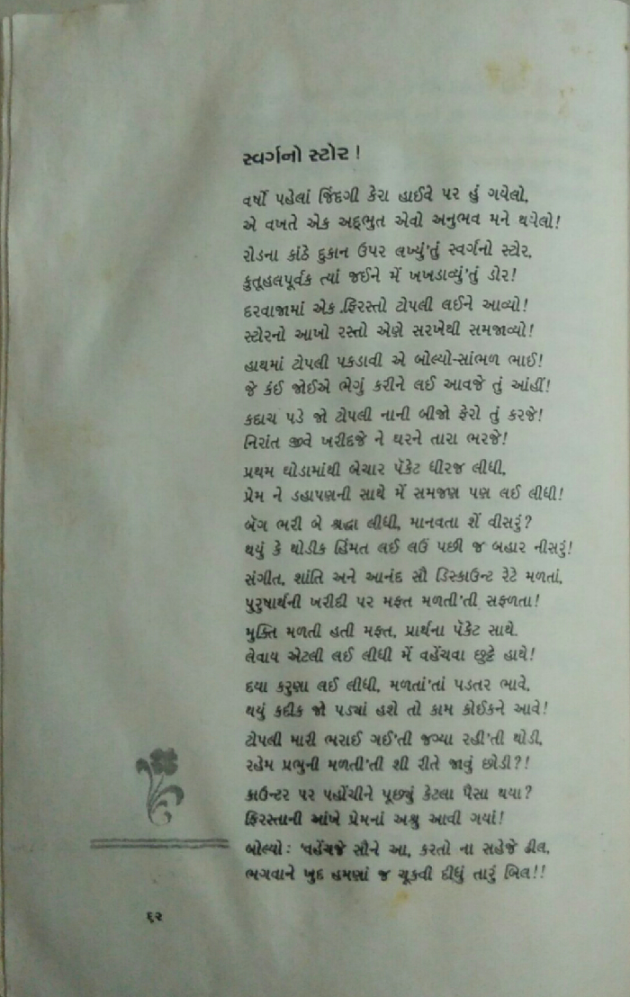 સ્વર્ગનો સ્ટોર !
વર્ષો પહેલાં જિંદગી કેરા હાઈવે પર હું ગયેલો,
એ વખતે એક અદ્ભુત એવો અનુભવ મને થયેલો!
રોડના કાંઠે દુકાન ઉપર લખ્યું'તું સ્વર્ગનો સ્ટોર,
કુતૂહલપૂર્વક ત્યાં જઈને મેં ખખડાવ્યું'તું ડોર!
દરવાજામાં એક ફિરસ્તો ટોપલી લઈને આવ્યો!
સ્ટોરનો આખો રસ્તો એણે સરખેથી સમજાવ્યો!
હાથમાં ટોપલી પકડાવી એ બોલ્યો-સાંભળ ભાઈ!
જે કંઈ જોઈએ ભેગું કરીને લઈ આવજે તું આંહીં!
કદાચ પડે જો ટોપલી નાની બીજો ફેરો તું કરજે!
નિરાંત જીવે ખરીદજે ને ઘરને તારા ભરજે!
પ્રથમ ઘોડામાંથી બેચાર પૅકેટ ધીરજ લીધી,
પ્રેમ ને ડહાપણની સાથે મેં સમજણ પણ લઈ લીધી!
બૅગ ભરી બે શ્રદ્ધા લીધી, માનવતા શેં વીસરું?
થયું કે થોડીક હિંમત લઈ લઉં પછી જ બહાર નીસરું!
સંગીત, શાંતિ અને આનંદ સૌ ડિસ્કાઉન્ટ રેટે મળતાં,
પુરુષાર્થની ખરીદી પર મફત મળતી'તી સફળતા!
મુક્તિ મળતી હતી મફત, પ્રાર્થના પૅકેટ સાથે.
લેવાય એટલી લઈ લીધી મેં વહેંચવા છુટ્ટે હાથે!
દયા કરુણા લઈ લીધી, મળતાં'તાં પડતર ભાવે,
થયું કદીક જો પડ્યાં હશે તો કામ કોઈકને આવે!
ટોપલી મારી ભરાઈ ગઈ'તી જગ્યા રહી'તી થોડી,
રહેમ પ્રભુની મળતી'તી શી રીતે જાવું છોડી?!
કાઉન્ટર પર પહોંચીને પૂછ્યું કેટલા પૈસા થયા?
ફિરસ્તાની આંખે પ્રેમનાં અશ્રુ આવી ગયાં!
બોલ્યો: 'વહેંચજે સૌને આ, કરતો ના સહેજે ઢીલ,
ભગવાને ખુદ હમણાં જ ચૂકવી દીધું તારું બિલ!!
૬૨